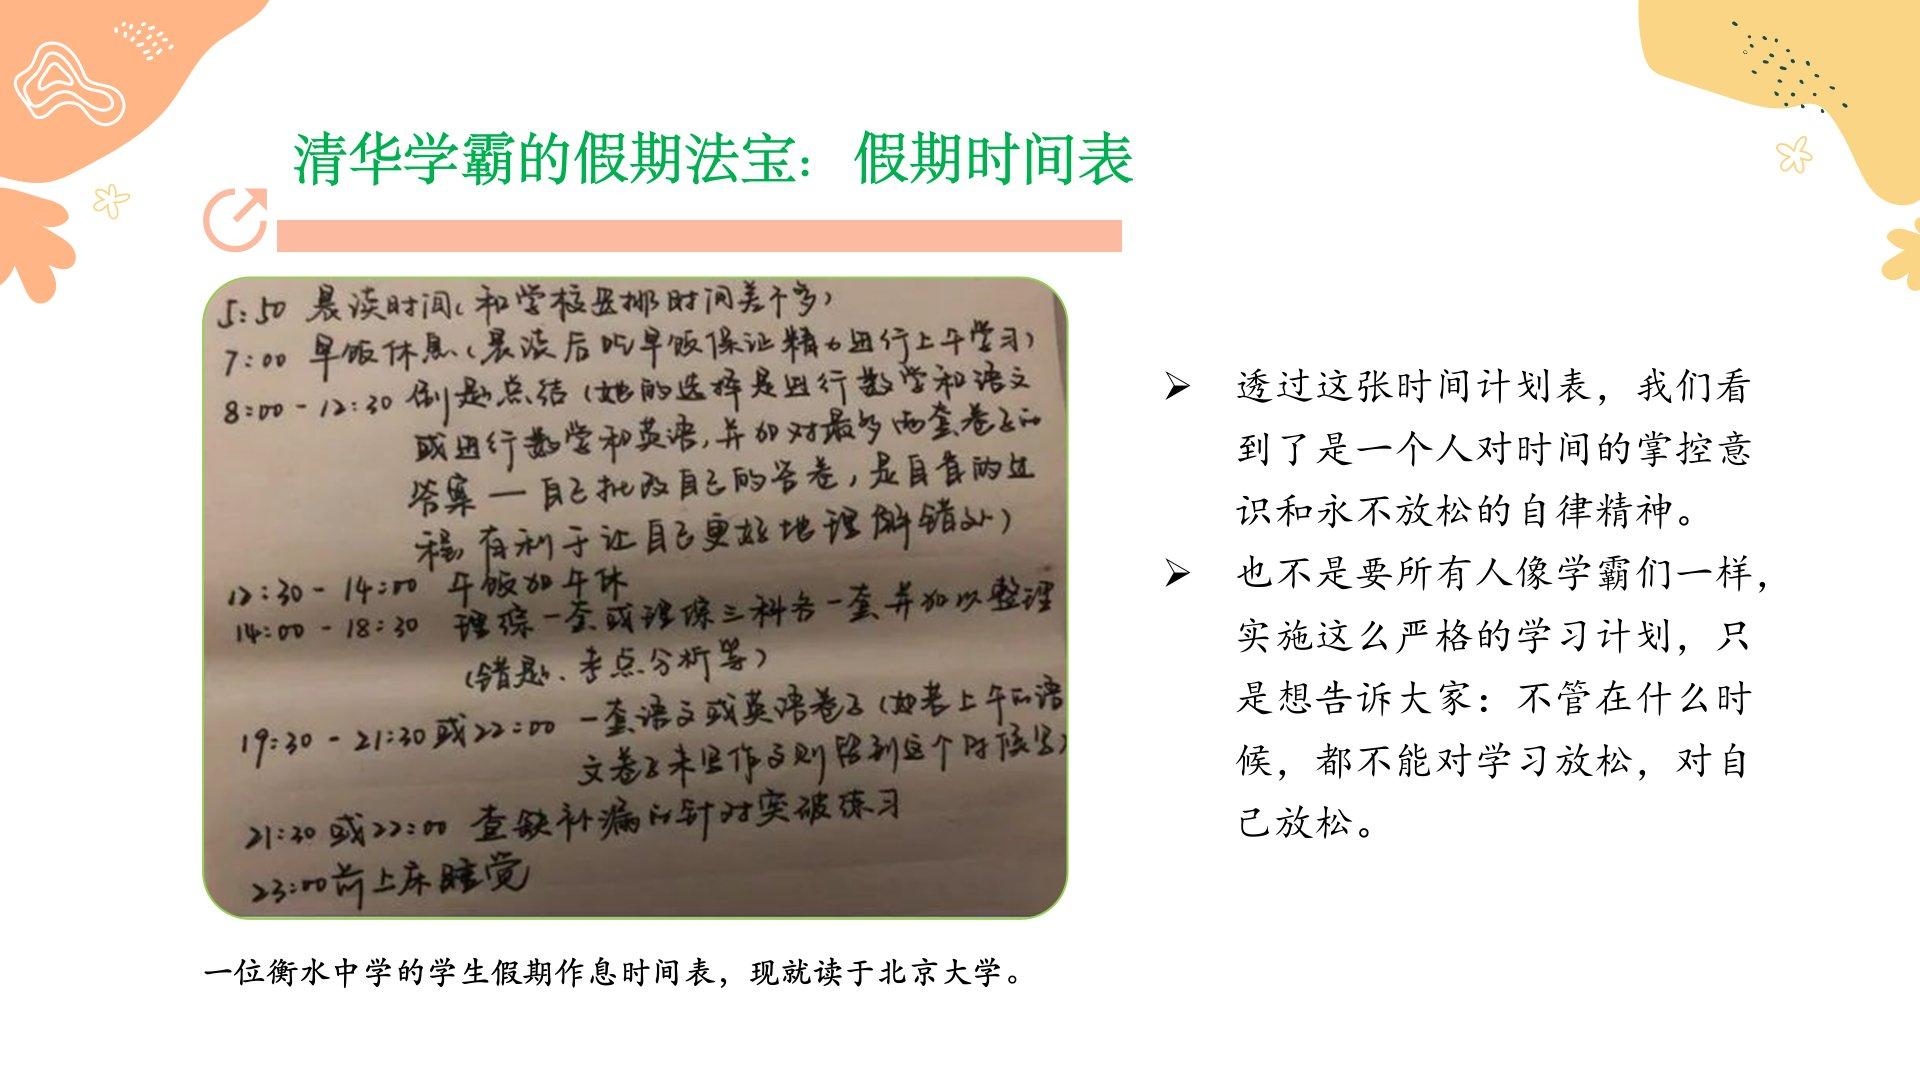 清华学霸的假期法宝：假期时间表
5:50 晨读时间（和学校安排时间差不多）
7:00 早饭休息（晨读后吃早饭保证精力进行上午学习）
8:00-12:30 刷题总结（她的选择是进行数学和语文
或进行数学和英语，并加对最多两套卷子的
答案—自己批改自己的答卷，是自省的过
程，有利于让自己更好地理解错处）
12:30-14:00 午饭加午休
14:00-18:30 理综一套或理综三科各一套，并加以整理
（错题、考点分析等）
19:30-21:30或22:00 一套语文或英语卷子（如若上午的语
文卷子未写作文则留到这个时候写）
21:30或22:00 查缺补漏的针对突破练习
23:00前上床睡觉
一位衡水中学的学生假期作息时间表，现就读于北京大学。
➢ 透过这张时间计划表，我们看
到了是一个人对时间的掌控意
识和永不放松的自律精神。
➢ 也不是要所有人像学霸们一样，
实施这么严格的学习计划，只
是想告诉大家：不管在什么时
候，都不能对学习放松，对自
己放松。